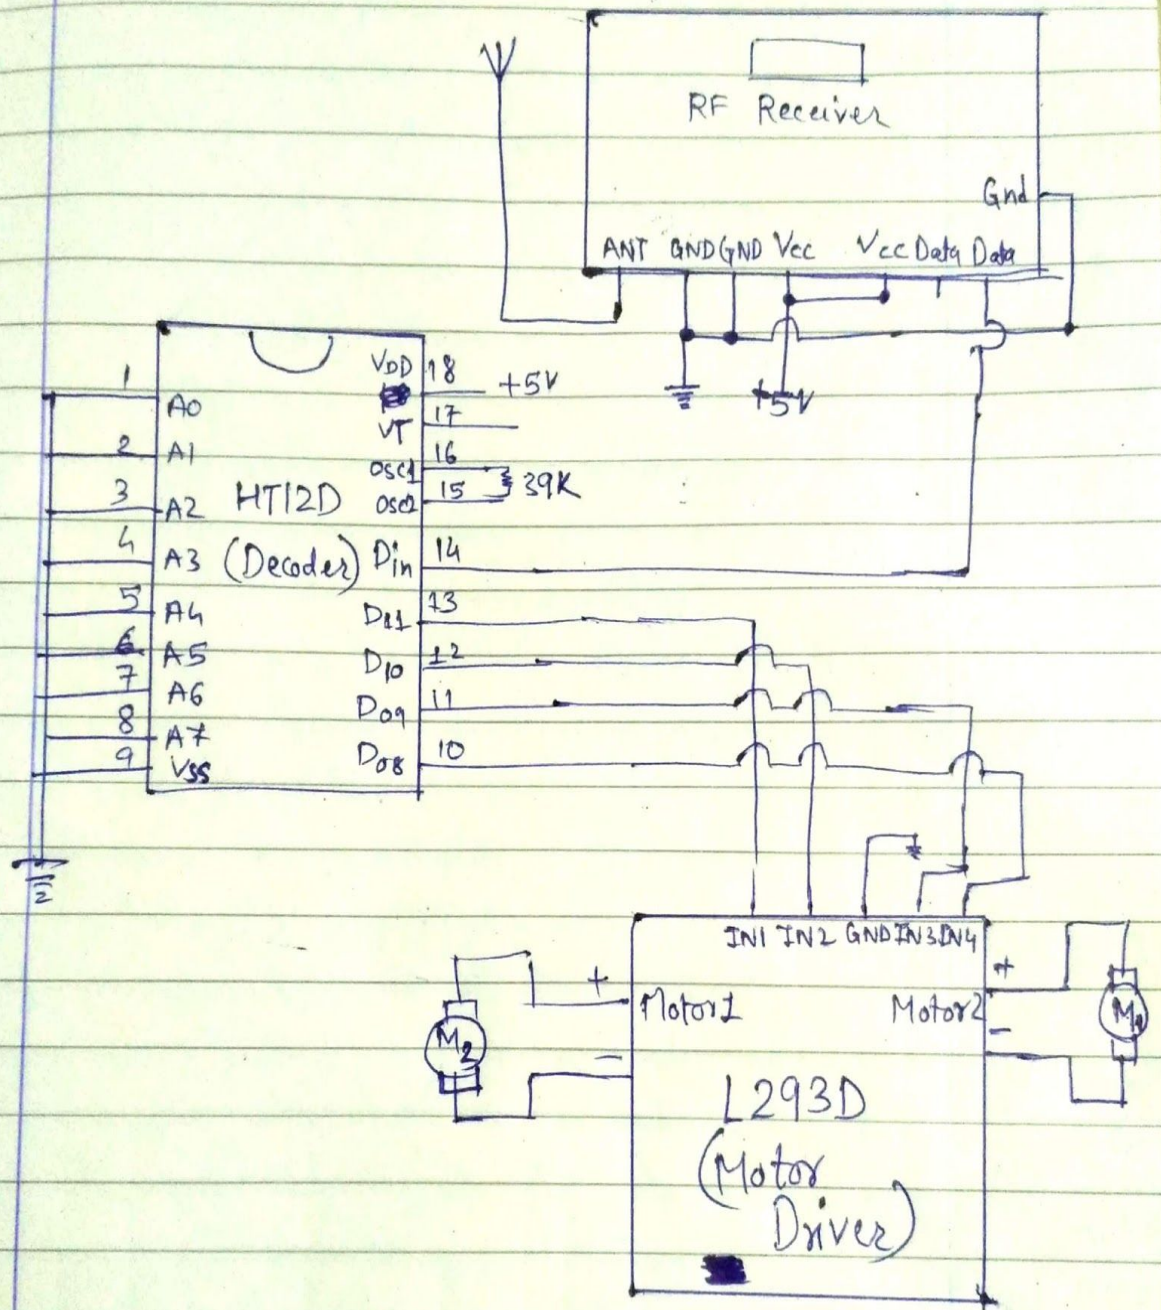 RF Receiver
Gnd
ANT GND GND Vcc Vcc Data Data
+5V
1 A0
2 A1
3 A2
4 A3
5 A4
6 A5
7 A6
8 A7
9 Vss
HT12D
(Decoder)
VDD 18 +5V
VT 17
OSC1 16
OSC2 15
39K
Din 14
D11 13
D10 12
D09 11
D08 10
IN1 IN2 GND IN3 IN4
+ Motor1
-
M2
Motor2 +
-
M1
L293D
(Motor
Driver)